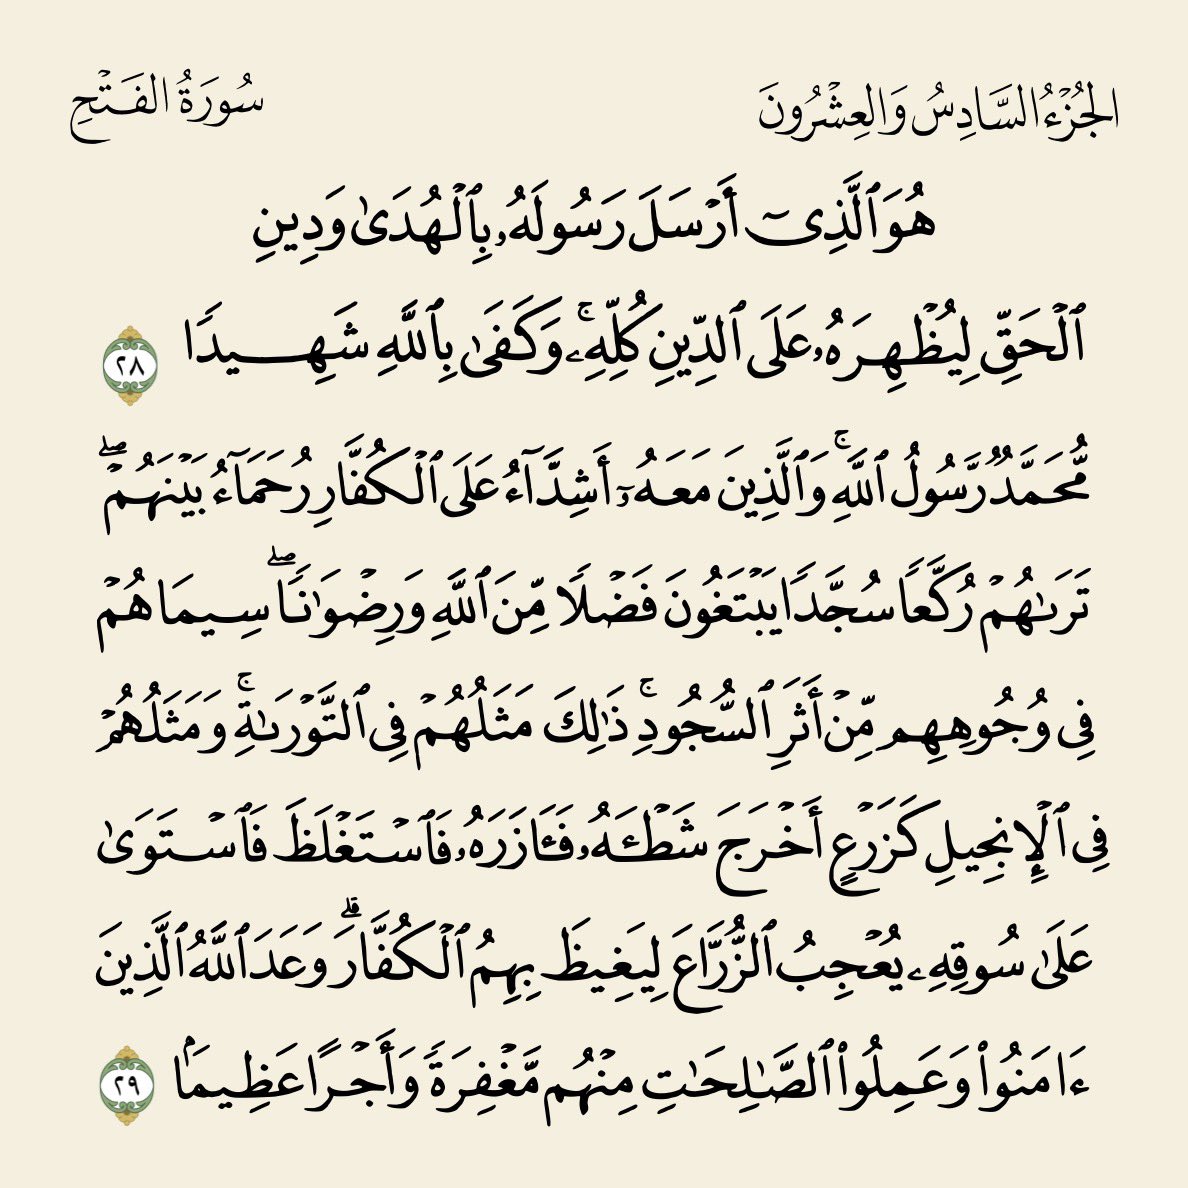 الجُزْءُ السَّادِسُ وَالعِشْرُونَ
سُورَةُ الفَتْحِ
هُوَ ٱلَّذِىٓ أَرْسَلَ رَسُولَهُۥ بِٱلْهُدَىٰ وَدِينِ
ٱلْحَقِّ لِيُظْهِرَهُۥ عَلَى ٱلدِّينِ كُلِّهِۦۚ وَكَفَىٰ بِٱللَّهِ شَهِيدًا ٢٨
مُّحَمَّدٌ رَّسُولُ ٱللَّهِۚ وَٱلَّذِينَ مَعَهُۥٓ أَشِدَّآءُ عَلَى ٱلْكُفَّارِ رُحَمَآءُ بَيْنَهُمْۖ
تَرَىٰهُمْ رُكَّعًا سُجَّدًا يَبْتَغُونَ فَضْلًا مِّنَ ٱللَّهِ وَرِضْوَٰنًاۖ سِيمَاهُمْ
فِى وُجُوهِهِم مِّنْ أَثَرِ ٱلسُّجُودِۚ ذَٰلِكَ مَثَلُهُمْ فِى ٱلتَّوْرَىٰةِۚ وَمَثَلُهُمْ
فِى ٱلْإِنجِيلِ كَزَرْعٍ أَخْرَجَ شَطْـَٔهُۥ فَـَٔازَرَهُۥ فَٱسْتَغْلَظَ فَٱسْتَوَىٰ
عَلَىٰ سُوقِهِۦ يُعْجِبُ ٱلزُّرَّاعَ لِيَغِيظَ بِهِمُ ٱلْكُفَّارَۗ وَعَدَ ٱللَّهُ ٱلَّذِينَ
ءَامَنُوا۟ وَعَمِلُوا۟ ٱلصَّـٰلِحَـٰتِ مِنْهُم مَّغْفِرَةً وَأَجْرًا عَظِيمًۢا ٢٩